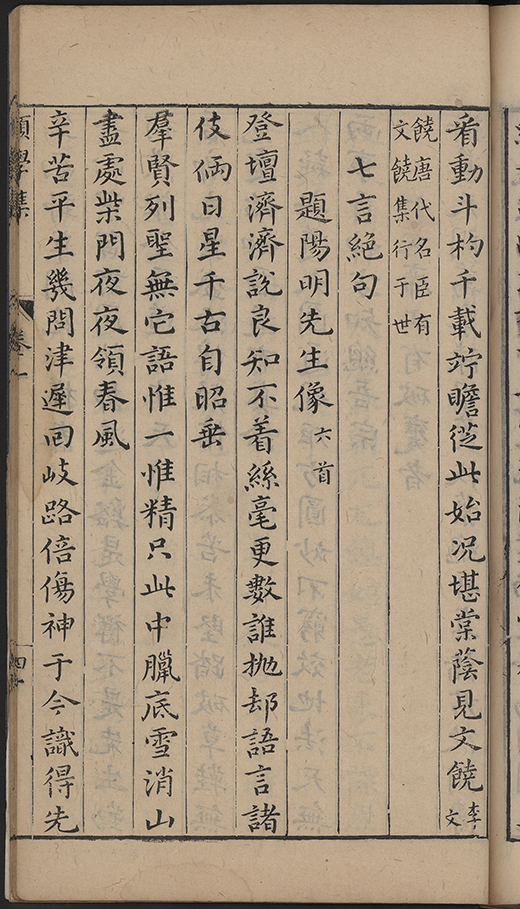 看動斗杓千載竚瞻從此始况堪棠蔭見文饒李文
饒唐代名臣有
文饒集行于世
七言絕句
題陽明先生像六首
登壇濟濟說良知不着絲毫更數誰拋却語言諸
伎倆日星千古自昭垂
羣賢列聖無它語惟一惟精只此中臘底雪消山
盡處柴門夜夜領春風
辛苦平生幾問津遲回岐路倍傷神于今識得先
願學集
卷一